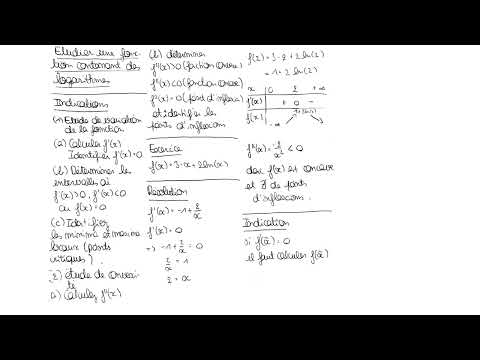 Etudier une fonc-
tion contenant des
logarithmes
Indications
(1) Etude de variation
de la fonction
(a) Calculer f'(x)
Identifier f'(x)=0
(b) Déterminer les
intervalles où
f'(x)>0, f'(x)<0
ou f'(x)=0
(c) Identifier
les minima et maxima
locaux (points
critiques)
(2) étude de convexi-
té
a) Calculer f''(x).
(b) déterminer
f''(x)>0 (fonction convexe)
f''(x)<0 (fonction concave)
f''(x)=0 (point d'inflexion)
et identifier les
points d'inflexions
Exercice
f(x)=3-x+2ln(x)
Résolution
f'(x)=-1+2/x
f'(x)=0
=> -1+2/x=0
2/x=1
2=x
f(2)=3-2+2ln(2)
=1+2ln(2)
x 0 2 +∞
f'(x) + 0 -
f(x) 1+2ln(2)
f''(x)=-2/x² < 0
donc f(x) est concave
et ∄ de points
d'inflexions.
Indication
si f'(a)=0
il faut calculer f(a)